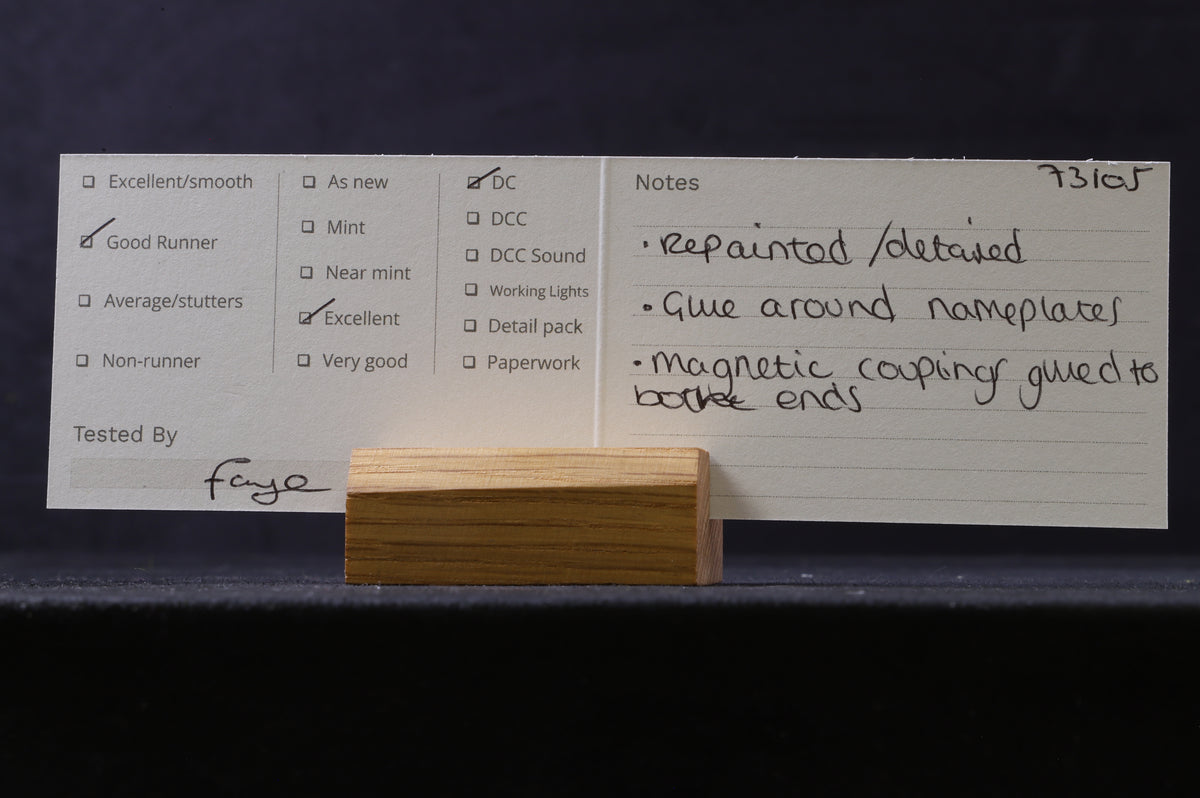 Excellent/smooth
Good Runner
Average/stutters
Non-runner
As new
Mint
Near mint
Excellent
Very good
DC
DCC
DCC Sound
Working Lights
Detail pack
Paperwork
Tested By
Faye
Notes
73105
• Repainted /detailed
• Glue around nameplates
• Magnetic couplings glued to
ends